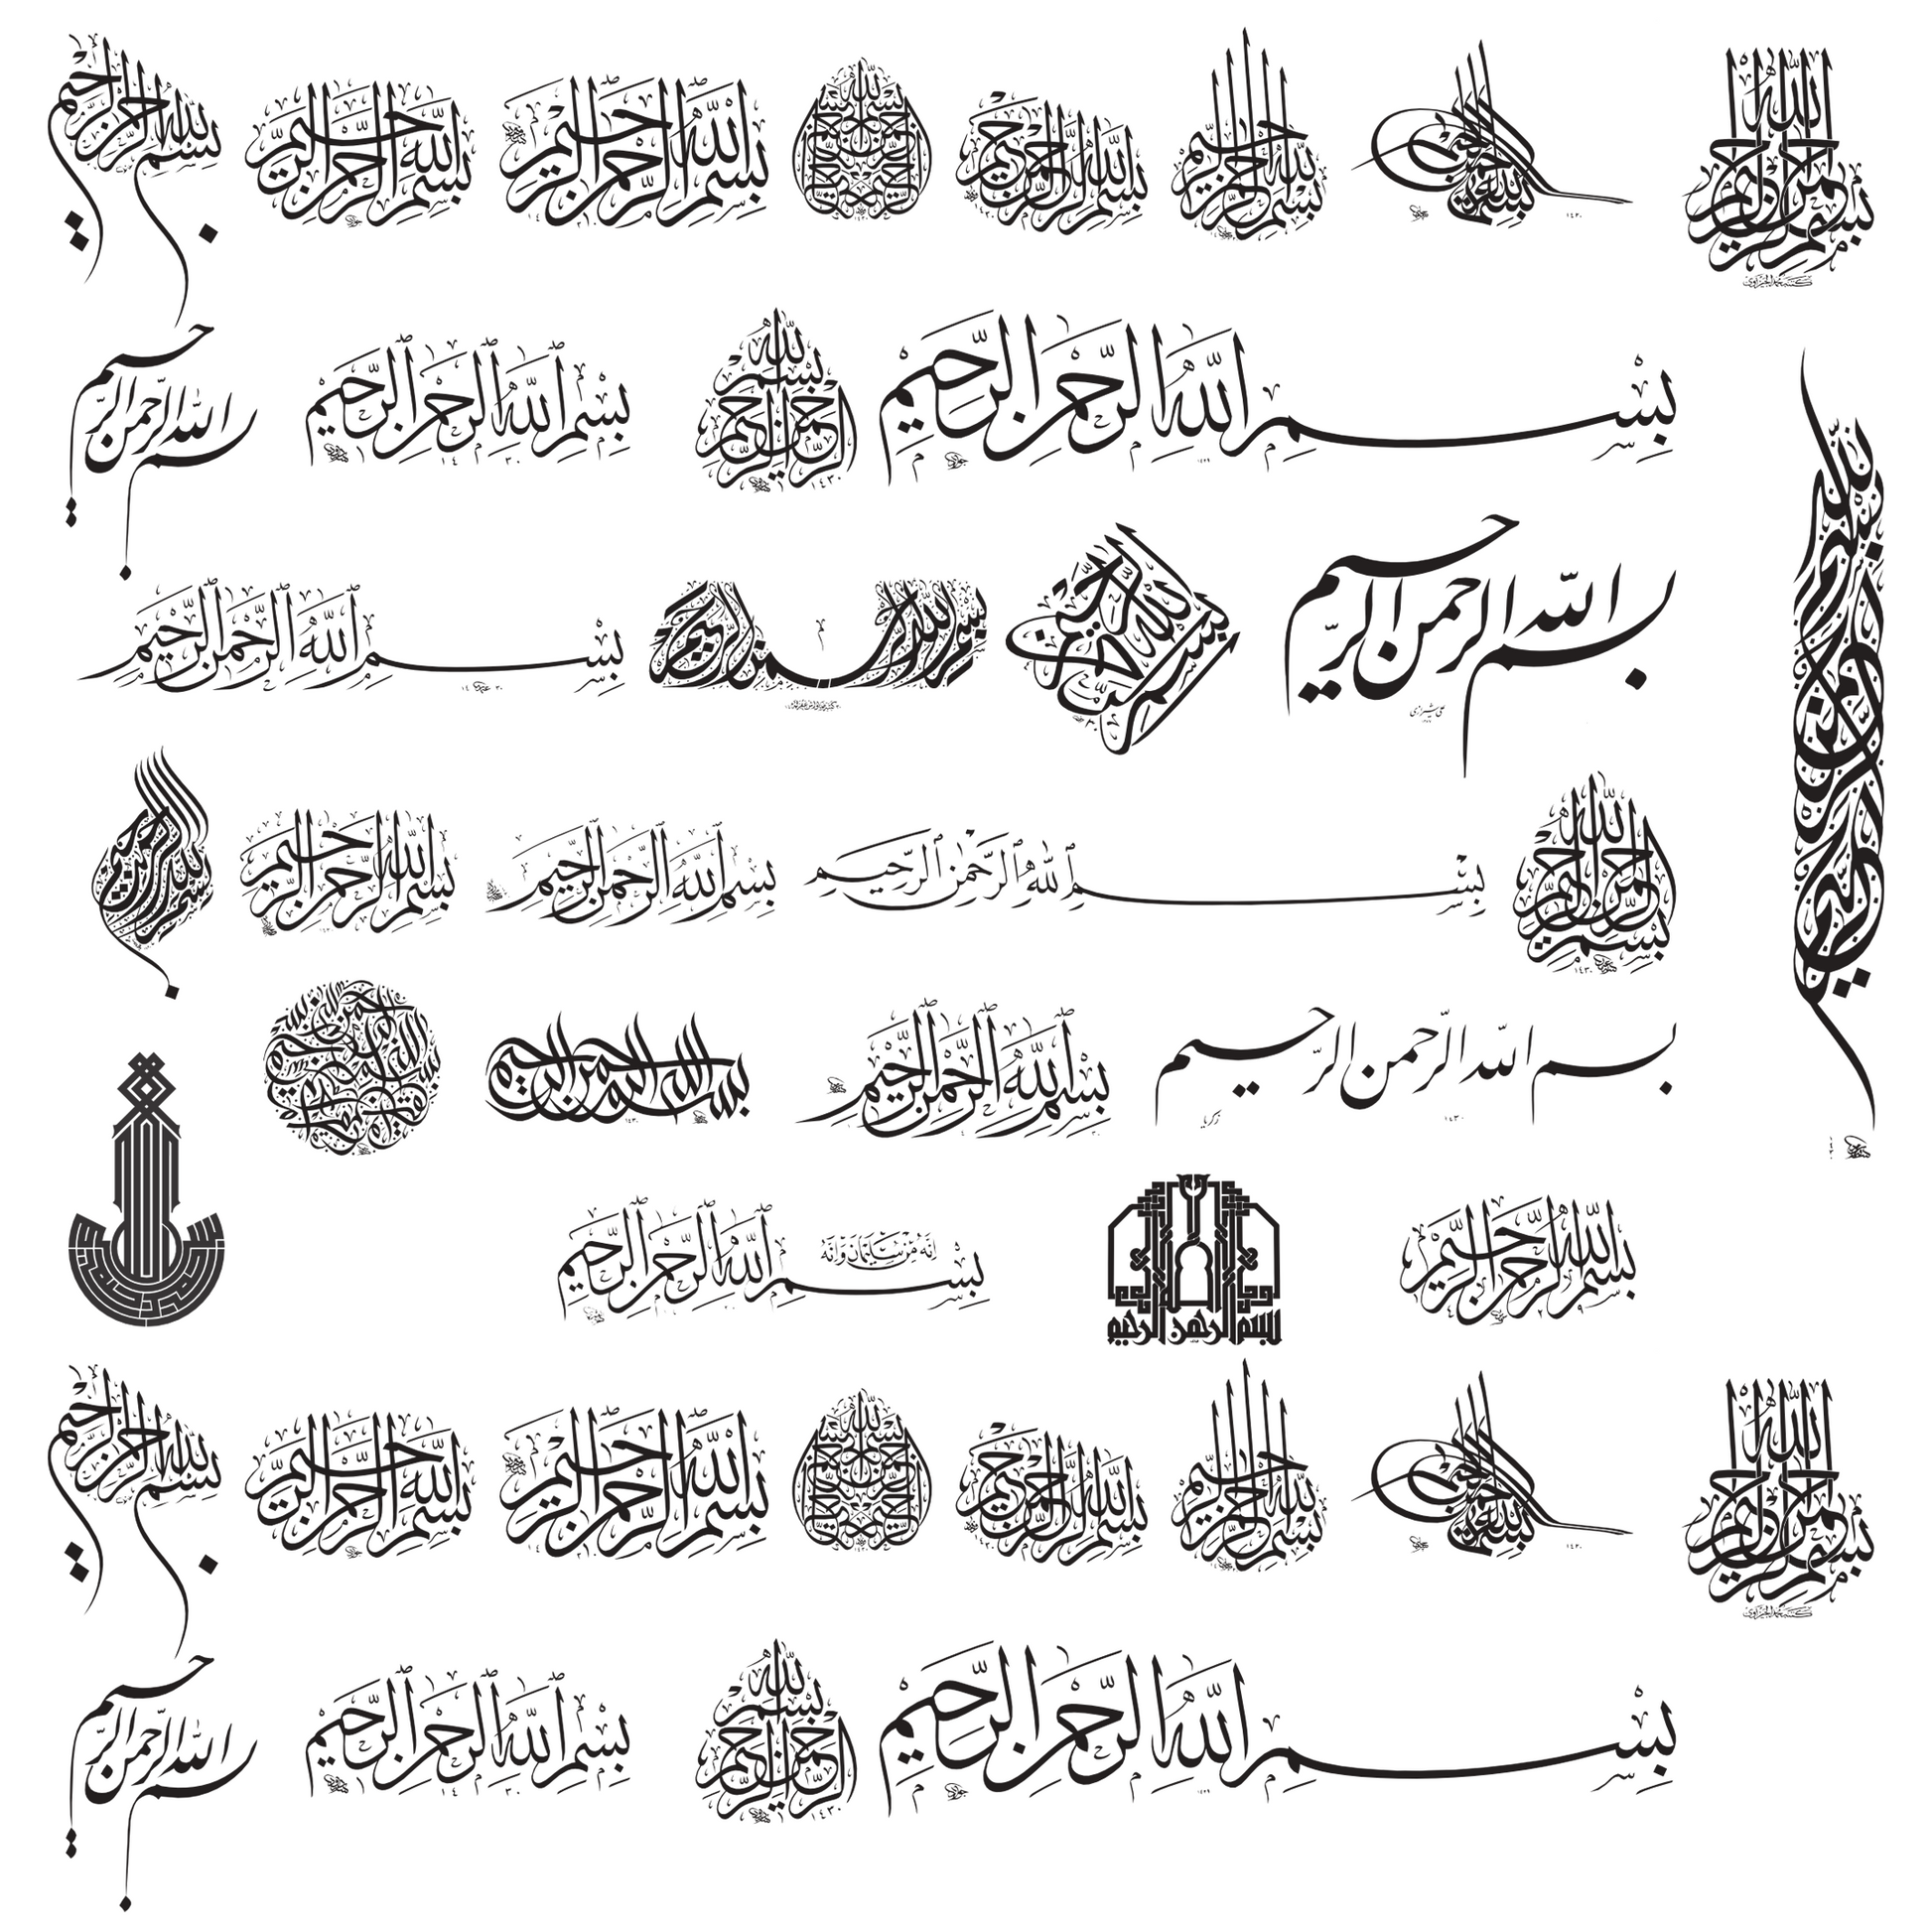 بسم الله الرحمن الرحيم
بسم الله الرحمن الرحيم
بسم الله الرحمن الرحيم
بسم الله الرحمن الرحيم
بسم الله الرحمن الرحيم
١٤٣٠
بسم الله الرحمن الرحيم
بسم الله الرحمن الرحيم
١٤٣٠
بسم الله الرحمن الرحيم
بسم الله الرحمن الرحيم
بسم الله الرحمن الرحيم
١٤٣٠
بسم الله الرحمن الرحيم
١٤٣٠
بسم الله الرحمن الرحيم
بسم الله الرحمن الرحيم
بسم الله الرحمن الرحيم
بسم الله الرحمن الرحيم
بسم الله الرحمن الرحيم
بسم الله الرحمن الرحيم
بسم الله الرحمن الرحيم
بسم الله الرحمن الرحيم
بسم الله الرحمن الرحيم
بسم الله الرحمن الرحيم
بسم الله الرحمن الرحيم
١٤٣٠
بسم الله الرحمن الرحيم
بسم الله الرحمن الرحيم
١٤٣٠
بسم الله الرحمن الرحيم
بسم الله الرحمن الرحيم
١٤٣٠
بسم الله الرحمن الرحيم
إنه من سليمان وإنه
بسم الله الرحمن الرحيم
بسم الله الرحمن الرحيم
بسم الله الرحمن الرحيم
بسم الله الرحمن الرحيم
بسم الله الرحمن الرحيم
بسم الله الرحمن الرحيم
بسم الله الرحمن الرحيم
بسم الله الرحمن الرحيم
بسم الله الرحمن الرحيم
بسم الله الرحمن الرحيم
١٤٣٠
بسم الله الرحمن الرحيم
بسم الله الرحمن الرحيم
بسم الله الرحمن الرحيم
١٤٣٠
بسم الله الرحمن الرحيم
١٤٣٠
بسم الله الرحمن الرحيم